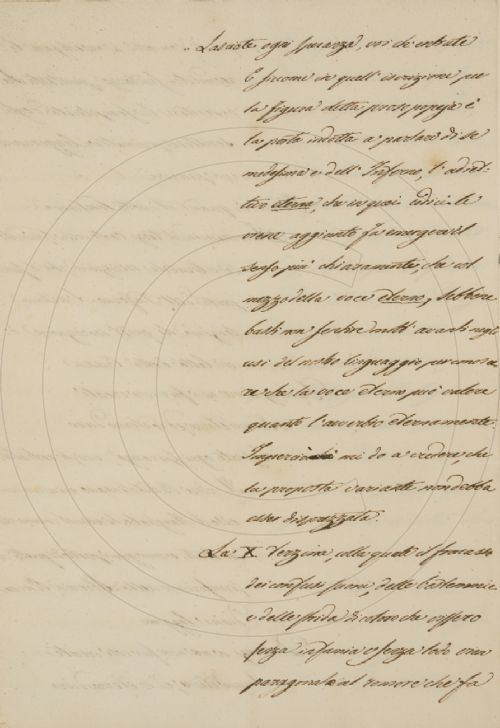 Lasciate ogni speranza, voi che entrate
E siccome in quell' iscrizione per
la figura della prosopopeja è
la porta indotta a parlare di se
medesima e dell' Inferno, l' adiet-
tivo eterna, che in quei
viene aggiunto fa emergere il
senso più chiaramente, che col
mezzo della voce eterno, sebbene
basti non sentire molt' avanti negli
usi del nostro linguaggio, per conosce-
re che la voce eterno può valere
quanto l' avverbio eternamente.
Imperciò mi do a credere, che
la proposta variante non debba
esser disprezzata.
La X terzina, alla quale il fracasso
dei confusi suoni, delle bestemmie
e delle strida di coloro che vissero
senza infamia e senza lodo viene
paragonato al rumore che fa